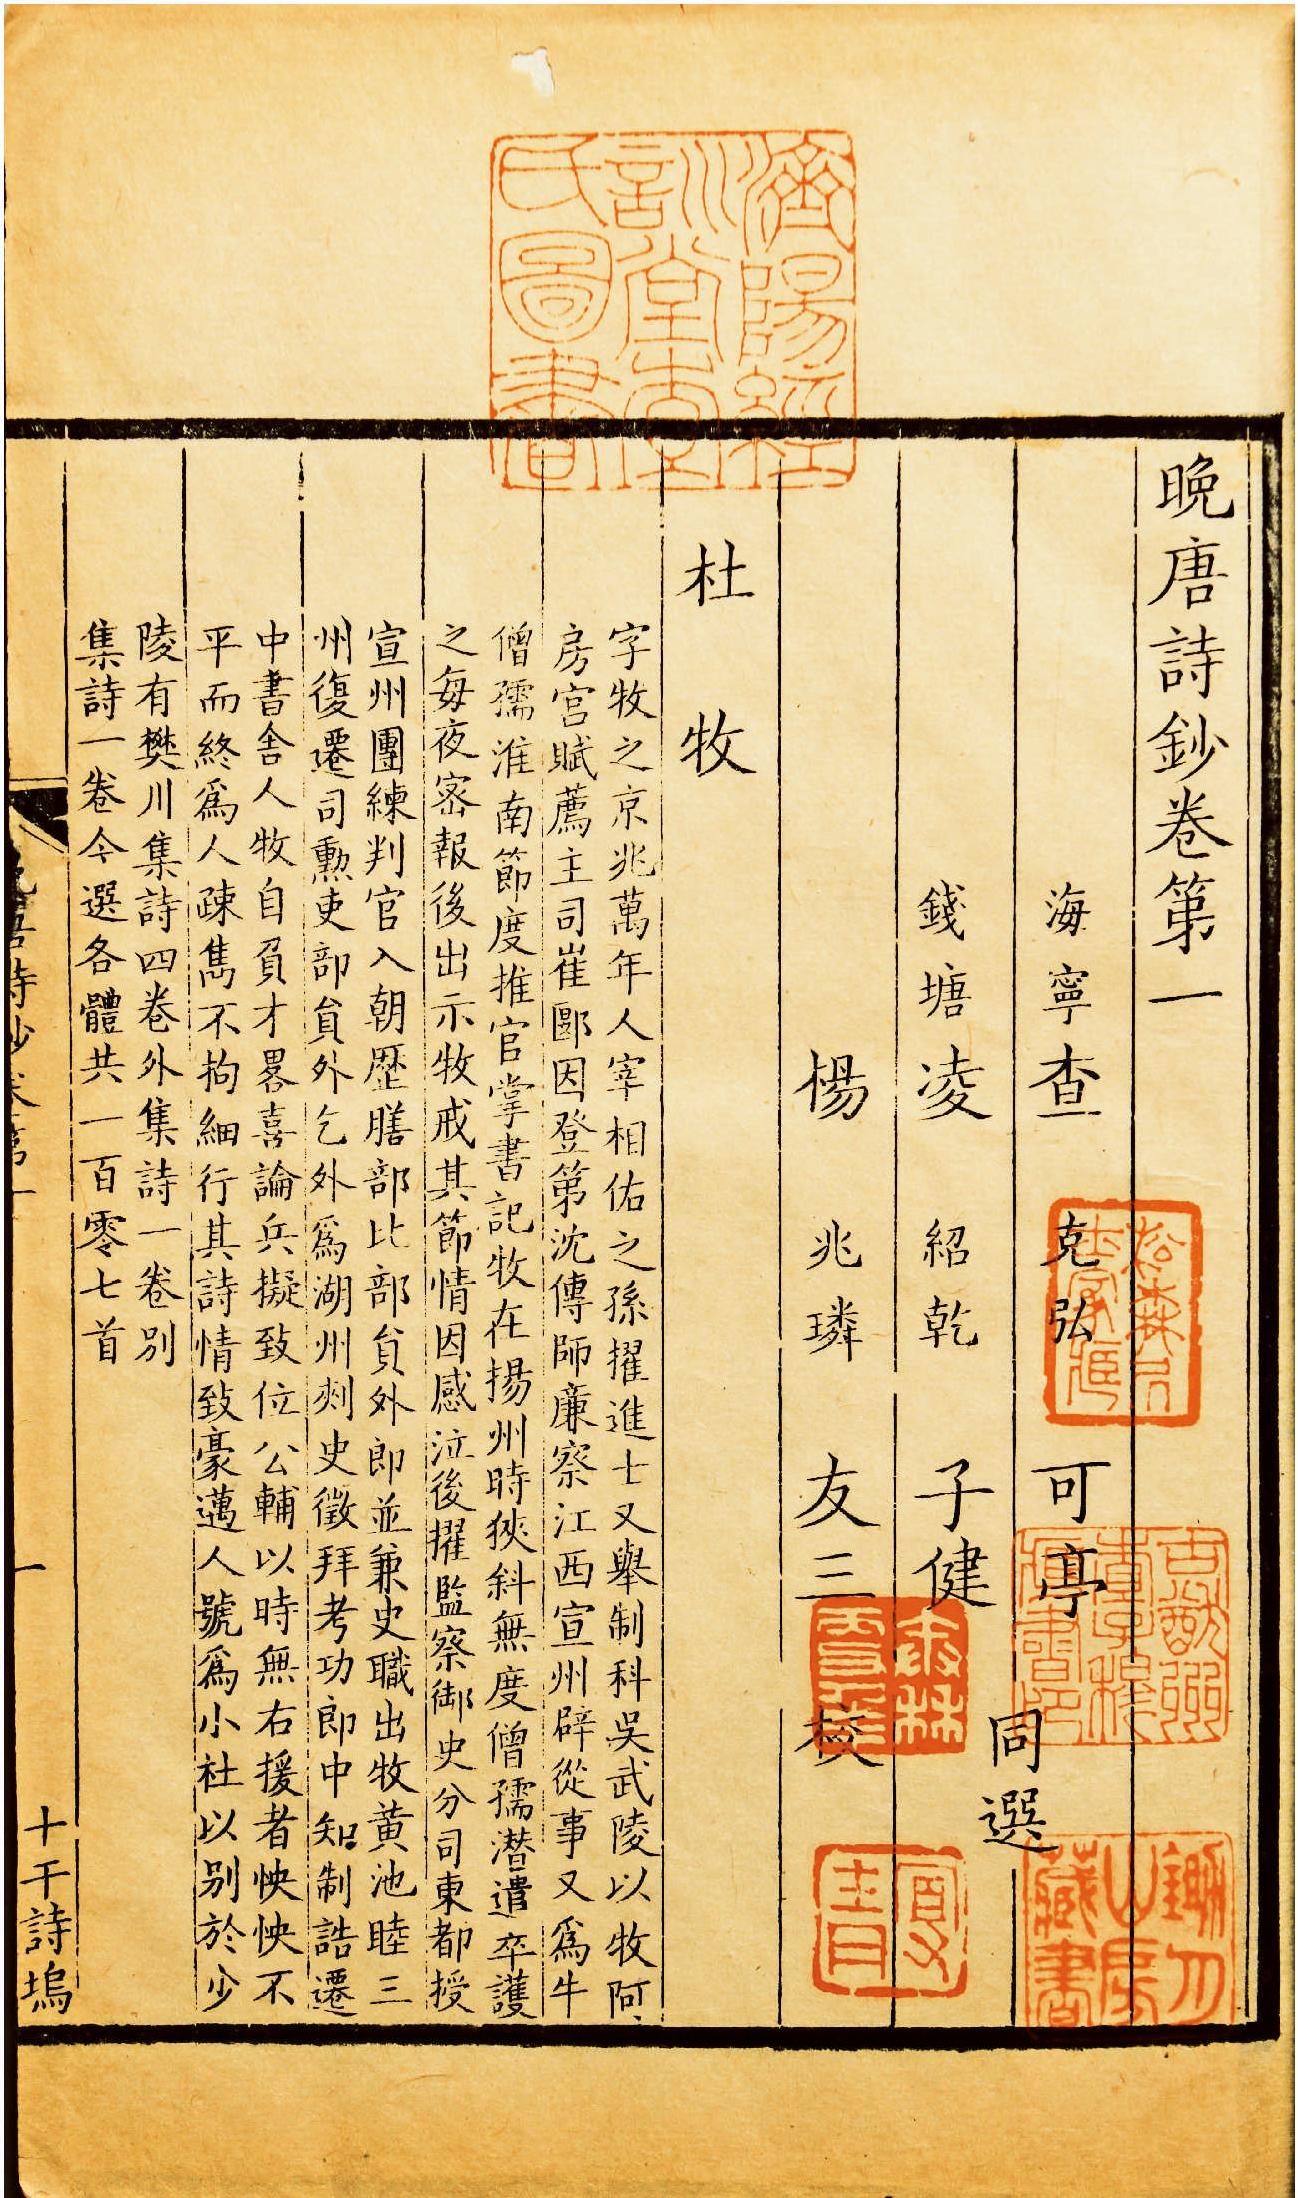 晚唐詩鈔卷第一
海寧查克弘可亭
錢塘凌紹乾子健
同選
楊兆璘友三校
杜牧
字牧之京兆萬年人宰相佑之孫擢進士又舉制科吳武陵以牧阿
房宮賦薦主司崔郾因登第沈傳師廉察江西宣州辟從事又爲牛
僧孺淮南節度推官掌書記牧在揚州時狹斜無度僧孺潛遣卒護
之每夜密報後出示牧戒其節情因感泣後擢監察御史分司東都授
宣州團練判官入朝歷膳部比部貟外郎並兼史職出牧黃池睦三
州復遷司勲吏部貟外乞外爲湖州刺史徵拜考功郎中知制誥遷
中書舍人牧自負才畧喜論兵擬致位公輔以時無右援者怏怏不
平而終爲人疎雋不拘細行其詩情致豪邁人號爲小杜以別於少
陵有樊川集詩四卷外集詩一卷別
集詩一卷今選各體共一百零七首
晚唐詩鈔卷第一
一
十干詩塢
濟陽經
訓堂查
氏圖書